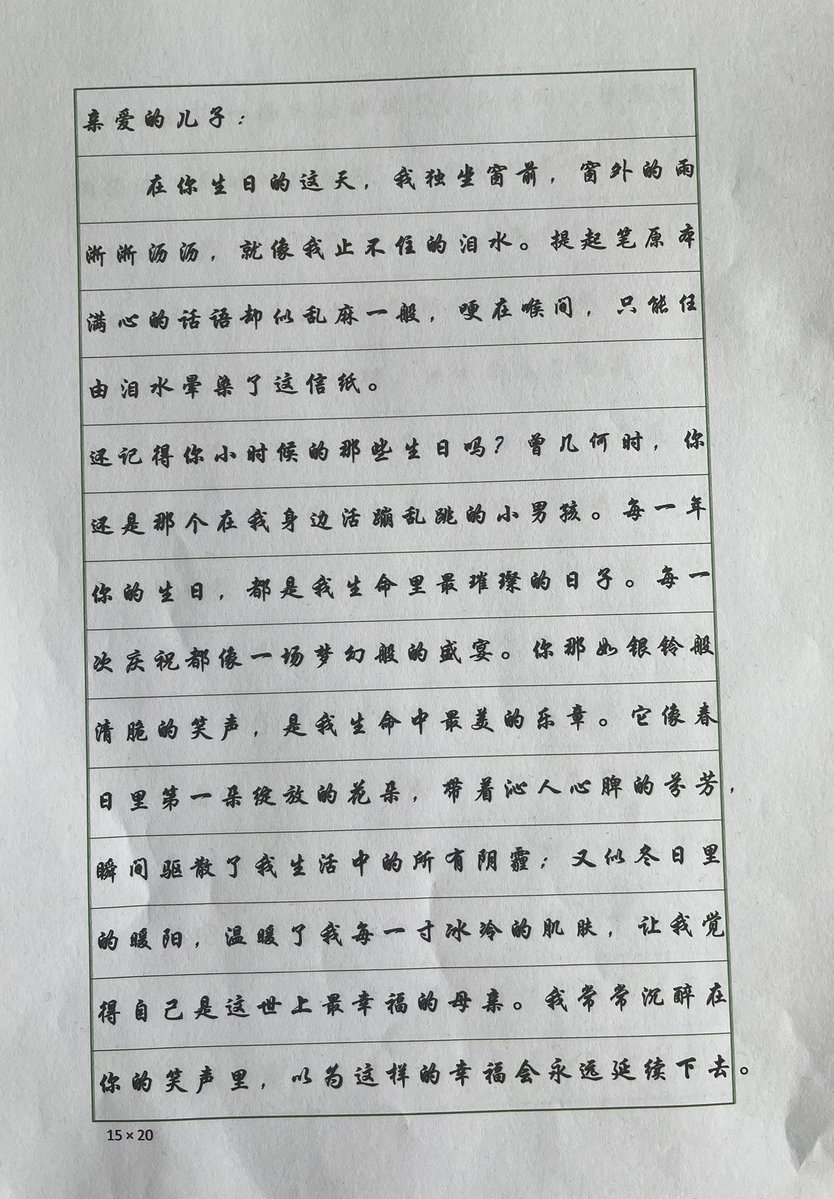 亲爱的儿子：
在你生日的这天，我独坐窗前，窗外的雨
淅淅沥沥，就像我止不住的泪水。提起笔原本
满心的话语却似乱麻一般，哽在喉间，只能任
由泪水晕染了这信纸。
还记得你小时候的那些生日吗？曾几何时，你
还是那个在我身边活蹦乱跳的小男孩。每一年
你的生日，都是我生命里最璀璨的日子。每一
次庆祝都像一场梦幻般的盛宴。你那如银铃般
清脆的笑声，是我生命中最美的乐章。它像春
日里第一朵绽放的花朵，带着沁人心脾的芬芳，
瞬间驱散了我生活中的所有阴霾；又似冬日里
的暖阳，温暖了我每一寸冰冷的肌肤，让我觉
得自己是这世上最幸福的母亲。我常常沉醉在
你的笑声里，以为这样的幸福会永远延续下去。
15×20